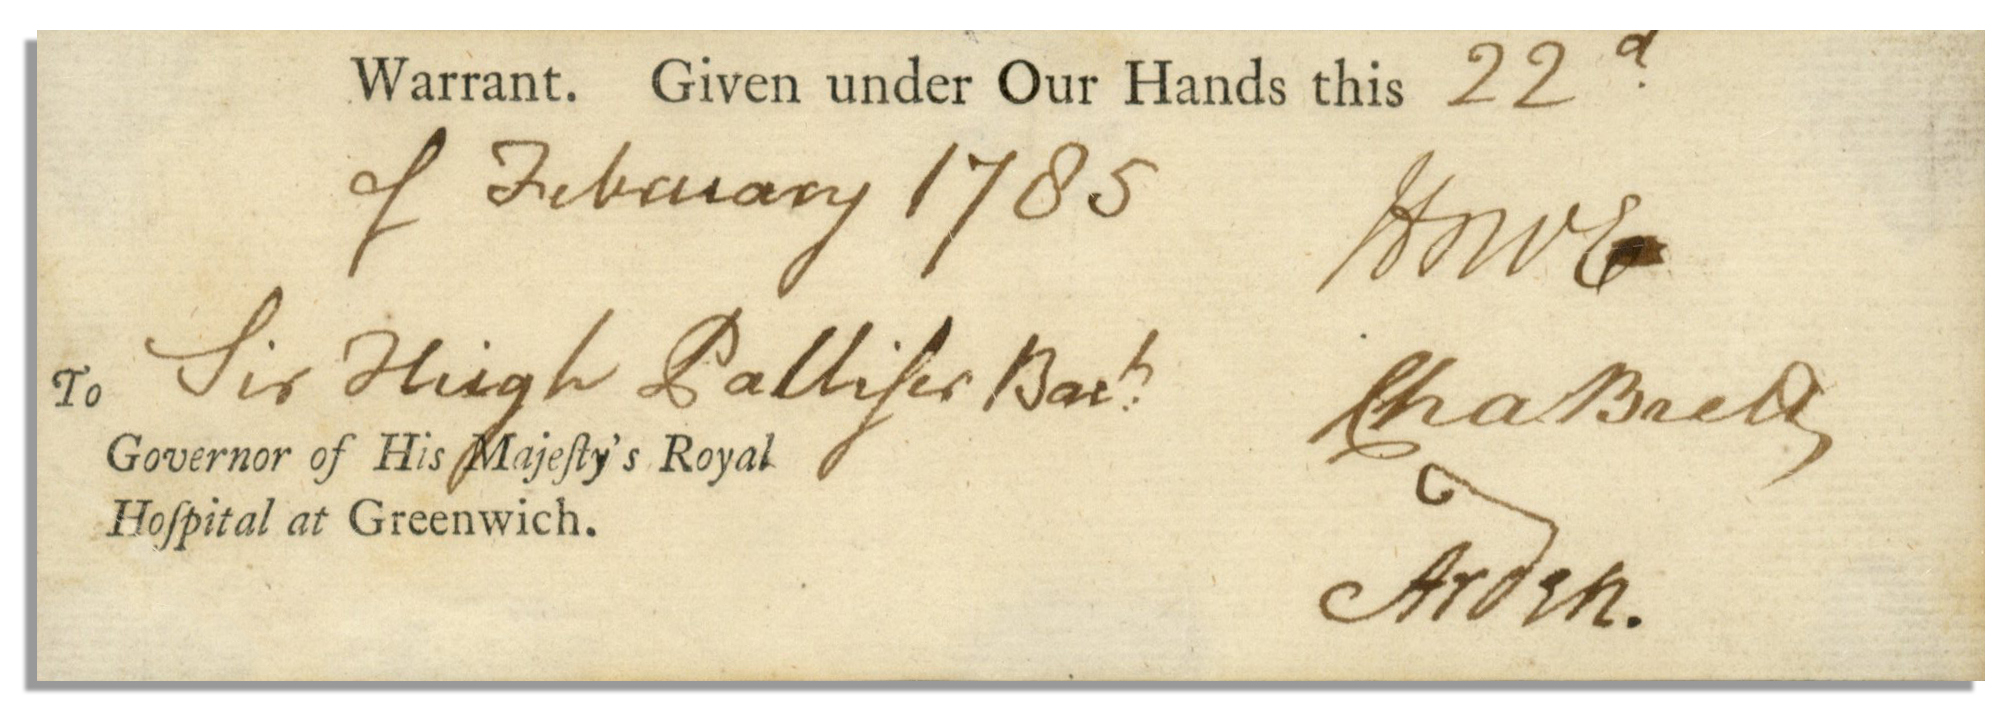 Warrant. Given under Our Hands this 22d.
of February 1785
Howe
To Sir Hugh Palliſer Bart.
Cha Brett
Governor of His Majeſty's Royal
Hoſpital at Greenwich.
Arden.